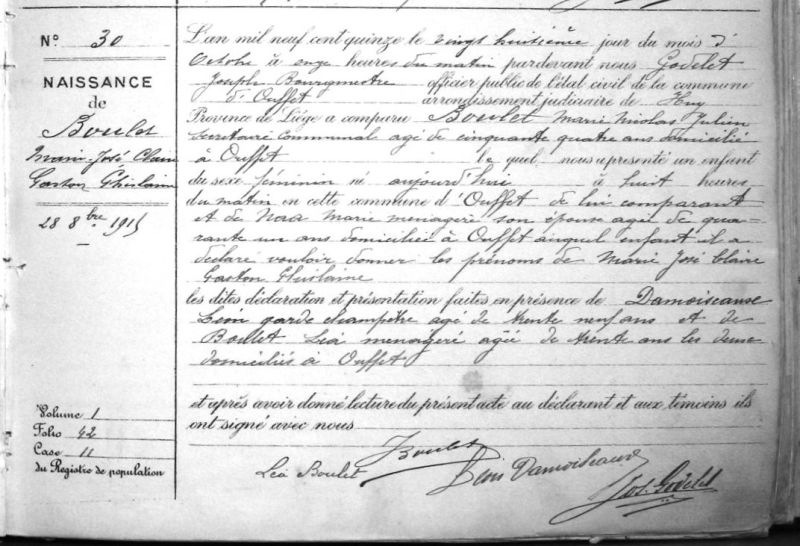 N° 30
NAISSANCE
de
Boulet
Marie-José Claire
Gaston Ghislaine
28 8bre 1915
Volume 1
Folio 42
Case 11
du Registre de population
L'an mil neuf cent quinze le vingt huitième jour du mois d'
Octobre à onze heures du matin pardevant nous Godelet
Joseph Bourgmestre officier public de l'état civil de la commune
d'Ouffet arrondissement judiciaire de Huy
Province de Liége a comparu Boulet Marie Nicolas Julien
Secrétaire Communal agé de cinquante quatre ans domicilié
à Ouffet lequel nous a présenté un enfant
du sexe féminin né aujourd'hui à huit heures
du matin en cette commune d'Ouffet de lui comparant
et de Marie menagere son épouse agée de qua-
rante un ans domiciliée à Ouffet auquel enfant il a
déclaré vouloir donner les prénoms de Marie José Claire
Gaston Ghislaine
les dites déclaration et présentation faites en présence de Damoiseaux
Léon garde champêtre agé de trente neuf ans et de
Boulet Léa menagère agée de trente ans les deux
domiciliés à Ouffet
et après avoir donné lecture du présent acte au déclarant et aux témoins ils
ont signé avec nous
Léa Boulet JBoulet Léon Damoiseaux
Jos. Godelet